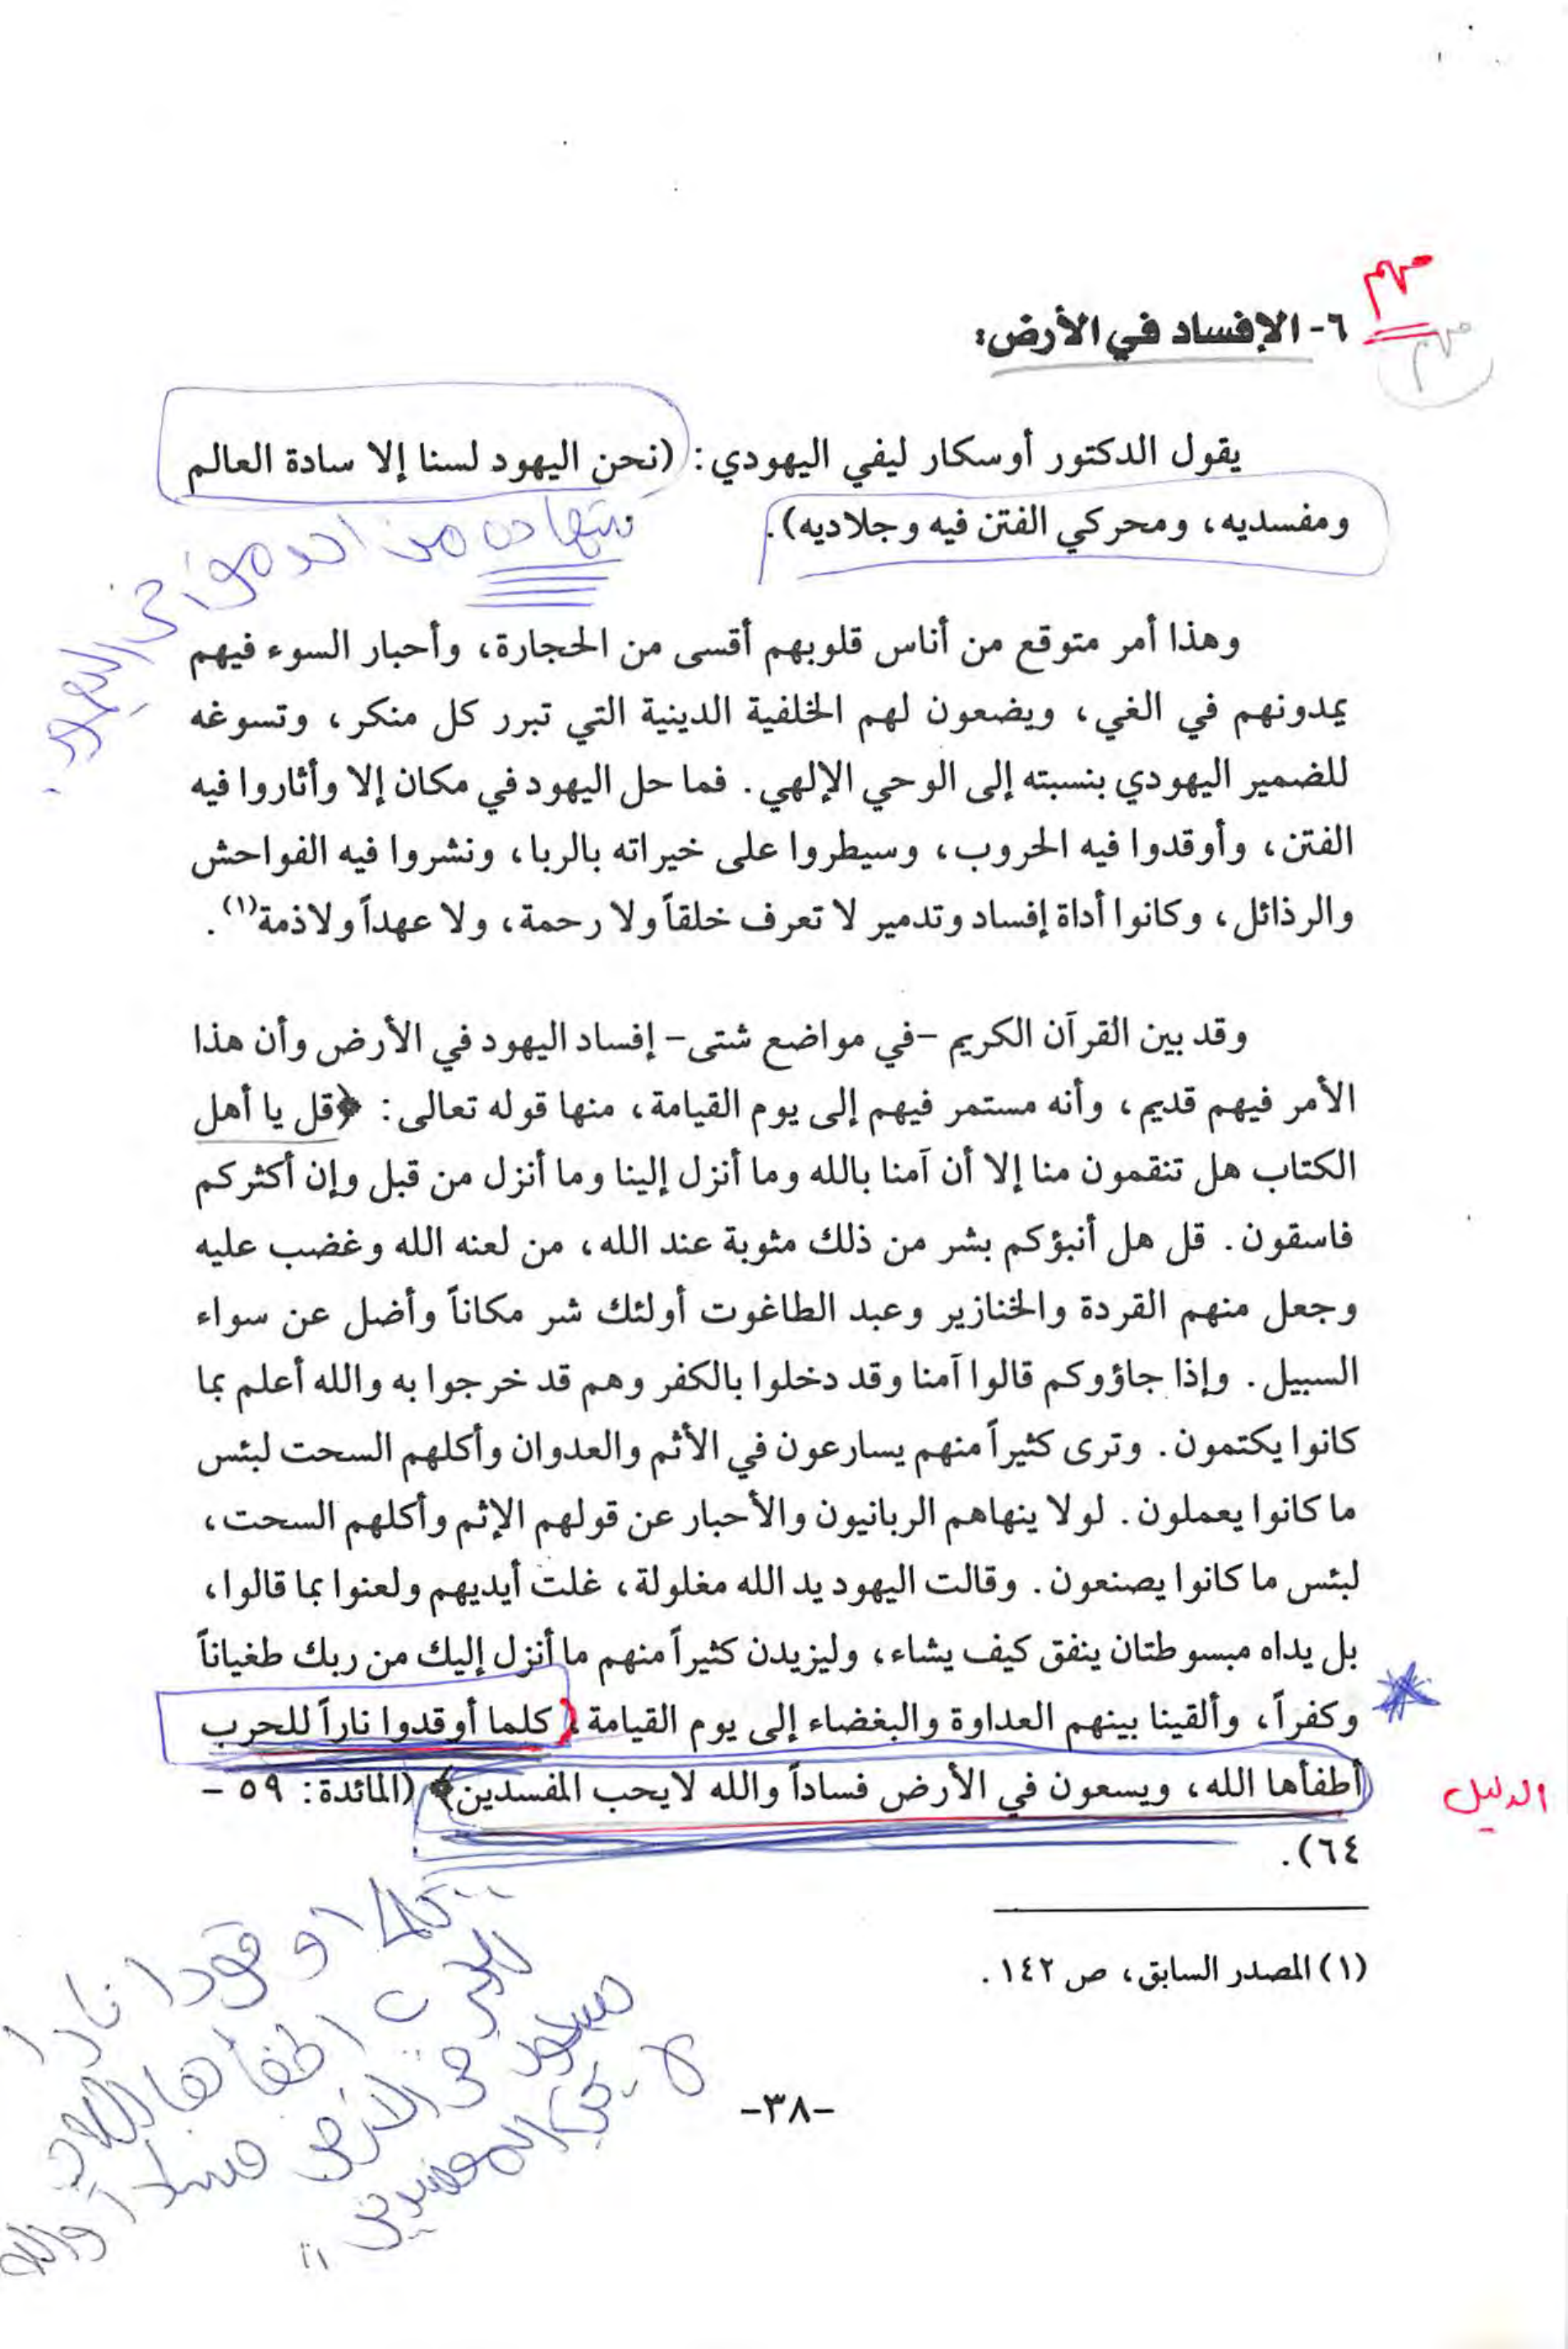 مهم
مهم
٦- الإفساد في الأرض:
يقول الدكتور أوسكار ليفي اليهودي: (نحن اليهود لسنا إلا سادة العالم
ومفسديه، ومحركي الفتن فيه وجلاديه).
شهادة من احد مؤرخي اليهود.
وهذا أمر متوقع من أناس قلوبهم أقسى من الحجارة، وأحبار السوء فيهم
يمدونهم في الغي، ويضعون لهم الخلفية الدينية التي تبرر كل منكر، وتسوغه
للضمير اليهودي بنسبته إلى الوحي الإلهي. فما حل اليهود في مكان إلا وأثاروا فيه
الفتن، وأوقدوا فيه الحروب، وسيطروا على خيراته بالربا، ونشروا فيه الفواحش
والرذائل، وكانوا أداة إفساد وتدمير لا تعرف خلقاً ولا رحمة، ولا عهداً ولاذمة(١).
وقد بين القرآن الكريم -في مواضع شتى- إفساد اليهود في الأرض وأن هذا
الأمر فيهم قديم، وأنه مستمر فيهم إلى يوم القيامة، منها قوله تعالى: ﴿قل يا أهل
الكتاب هل تنقمون منا إلا أن آمنا بالله وما أنزل إلينا وما أنزل من قبل وإن أكثركم
فاسقون. قل هل أنبؤكم بشر من ذلك مثوبة عند الله، من لعنه الله وغضب عليه
وجعل منهم القردة والخنازير وعبد الطاغوت أولئك شر مكاناً وأضل عن سواء
السبيل. وإذا جاؤوكم قالوا آمنا وقد دخلوا بالكفر وهم قد خرجوا به والله أعلم بما
كانوا يكتمون. وترى كثيراً منهم يسارعون في الأثم والعدوان وأكلهم السحت لبئس
ما كانوا يعملون. لولا ينهاهم الربانيون والأحبار عن قولهم الإثم وأكلهم السحت،
لبئس ما كانوا يصنعون. وقالت اليهود يد الله مغلولة، غلت أيديهم ولعنوا بما قالوا،
بل يداه مبسوطتان ينفق كيف يشاء، وليزيدن كثيراً منهم ما أنزل إليك من ربك طغياناً
وكفراً، وألقينا بينهم العداوة والبغضاء إلى يوم القيامة. كلما أوقدوا ناراً للحرب
أطفأها الله، ويسعون في الأرض فساداً والله لايحب المفسدين﴾ (المائدة: ٥٩ -
٦٤).
الدليل
(١) المصدر السابق، ص ١٤٢.
كلما اوقدوا نارا
للحرب اطفأها الله
في الارض فسادا والله
لا يحب المفسدين"
-٣٨-